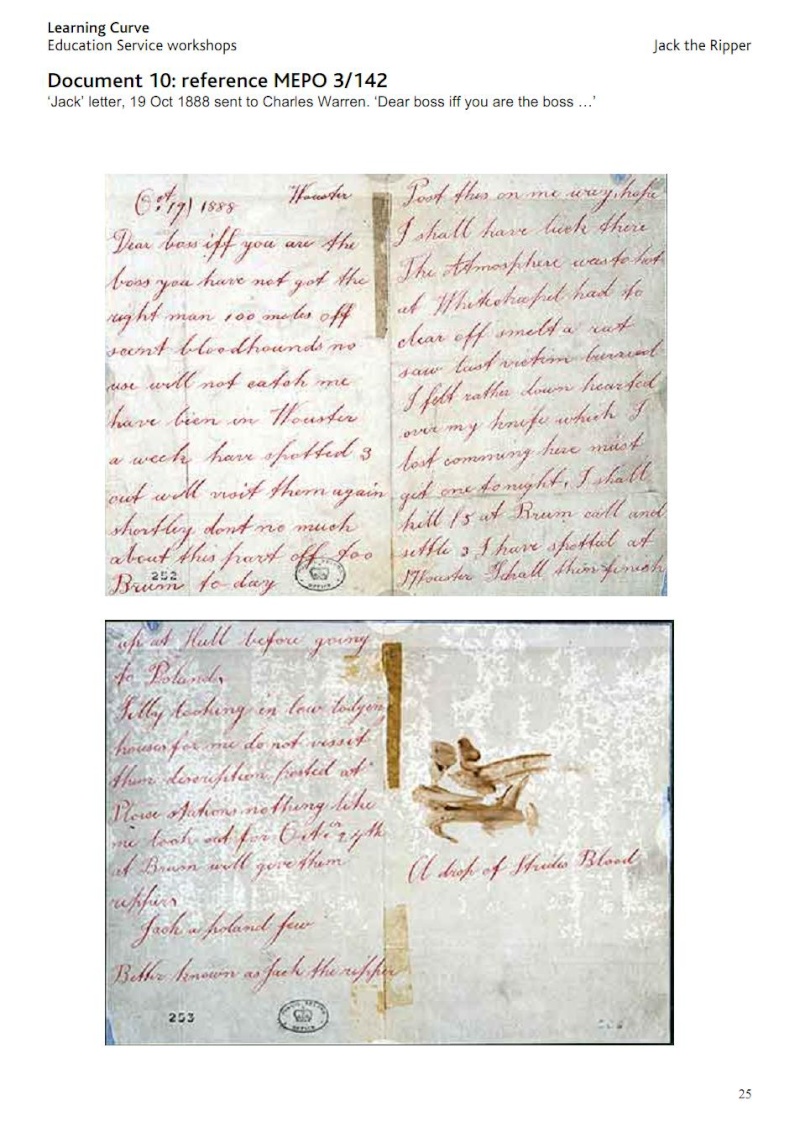 Learning Curve
Education Service workshops
Jack the Ripper
Document 10: reference MEPO 3/142
‘Jack’ letter, 19 Oct 1888 sent to Charles Warren. ‘Dear boss iff you are the boss …’
Oct 19) 1888 Wouster
Dear boss iff you are the
boss you have not got the
right man 100 miles off
scent bloodhounds no
use will not catch me
have been in Wouster
a week have spotted 3
out will visit them again
shortley dont no much
about this part off too
Brum to day
252
Post this on me way, hope
I shall have luck there
The Atmosphere was to hot
at Whitechapel had to
clear off smelt a rat
saw last victim burried
I felt rather down hearted
over my knife which I
lost comming here must
get one tonight. I shall
kill 15 at Brum call and
settle 3 I have spotted at
Wouster Shall then finish
up at Hull before going
to Poland.
Silly looking in low lodgen
houses for me do not vissit
them description posted at
Plosse stations nothing like
me look out for Octr 27th
at Brum will give them
rippers
Jack a poland jew
Better known as Jack the ripper
253
A drop of Strides Blood
25